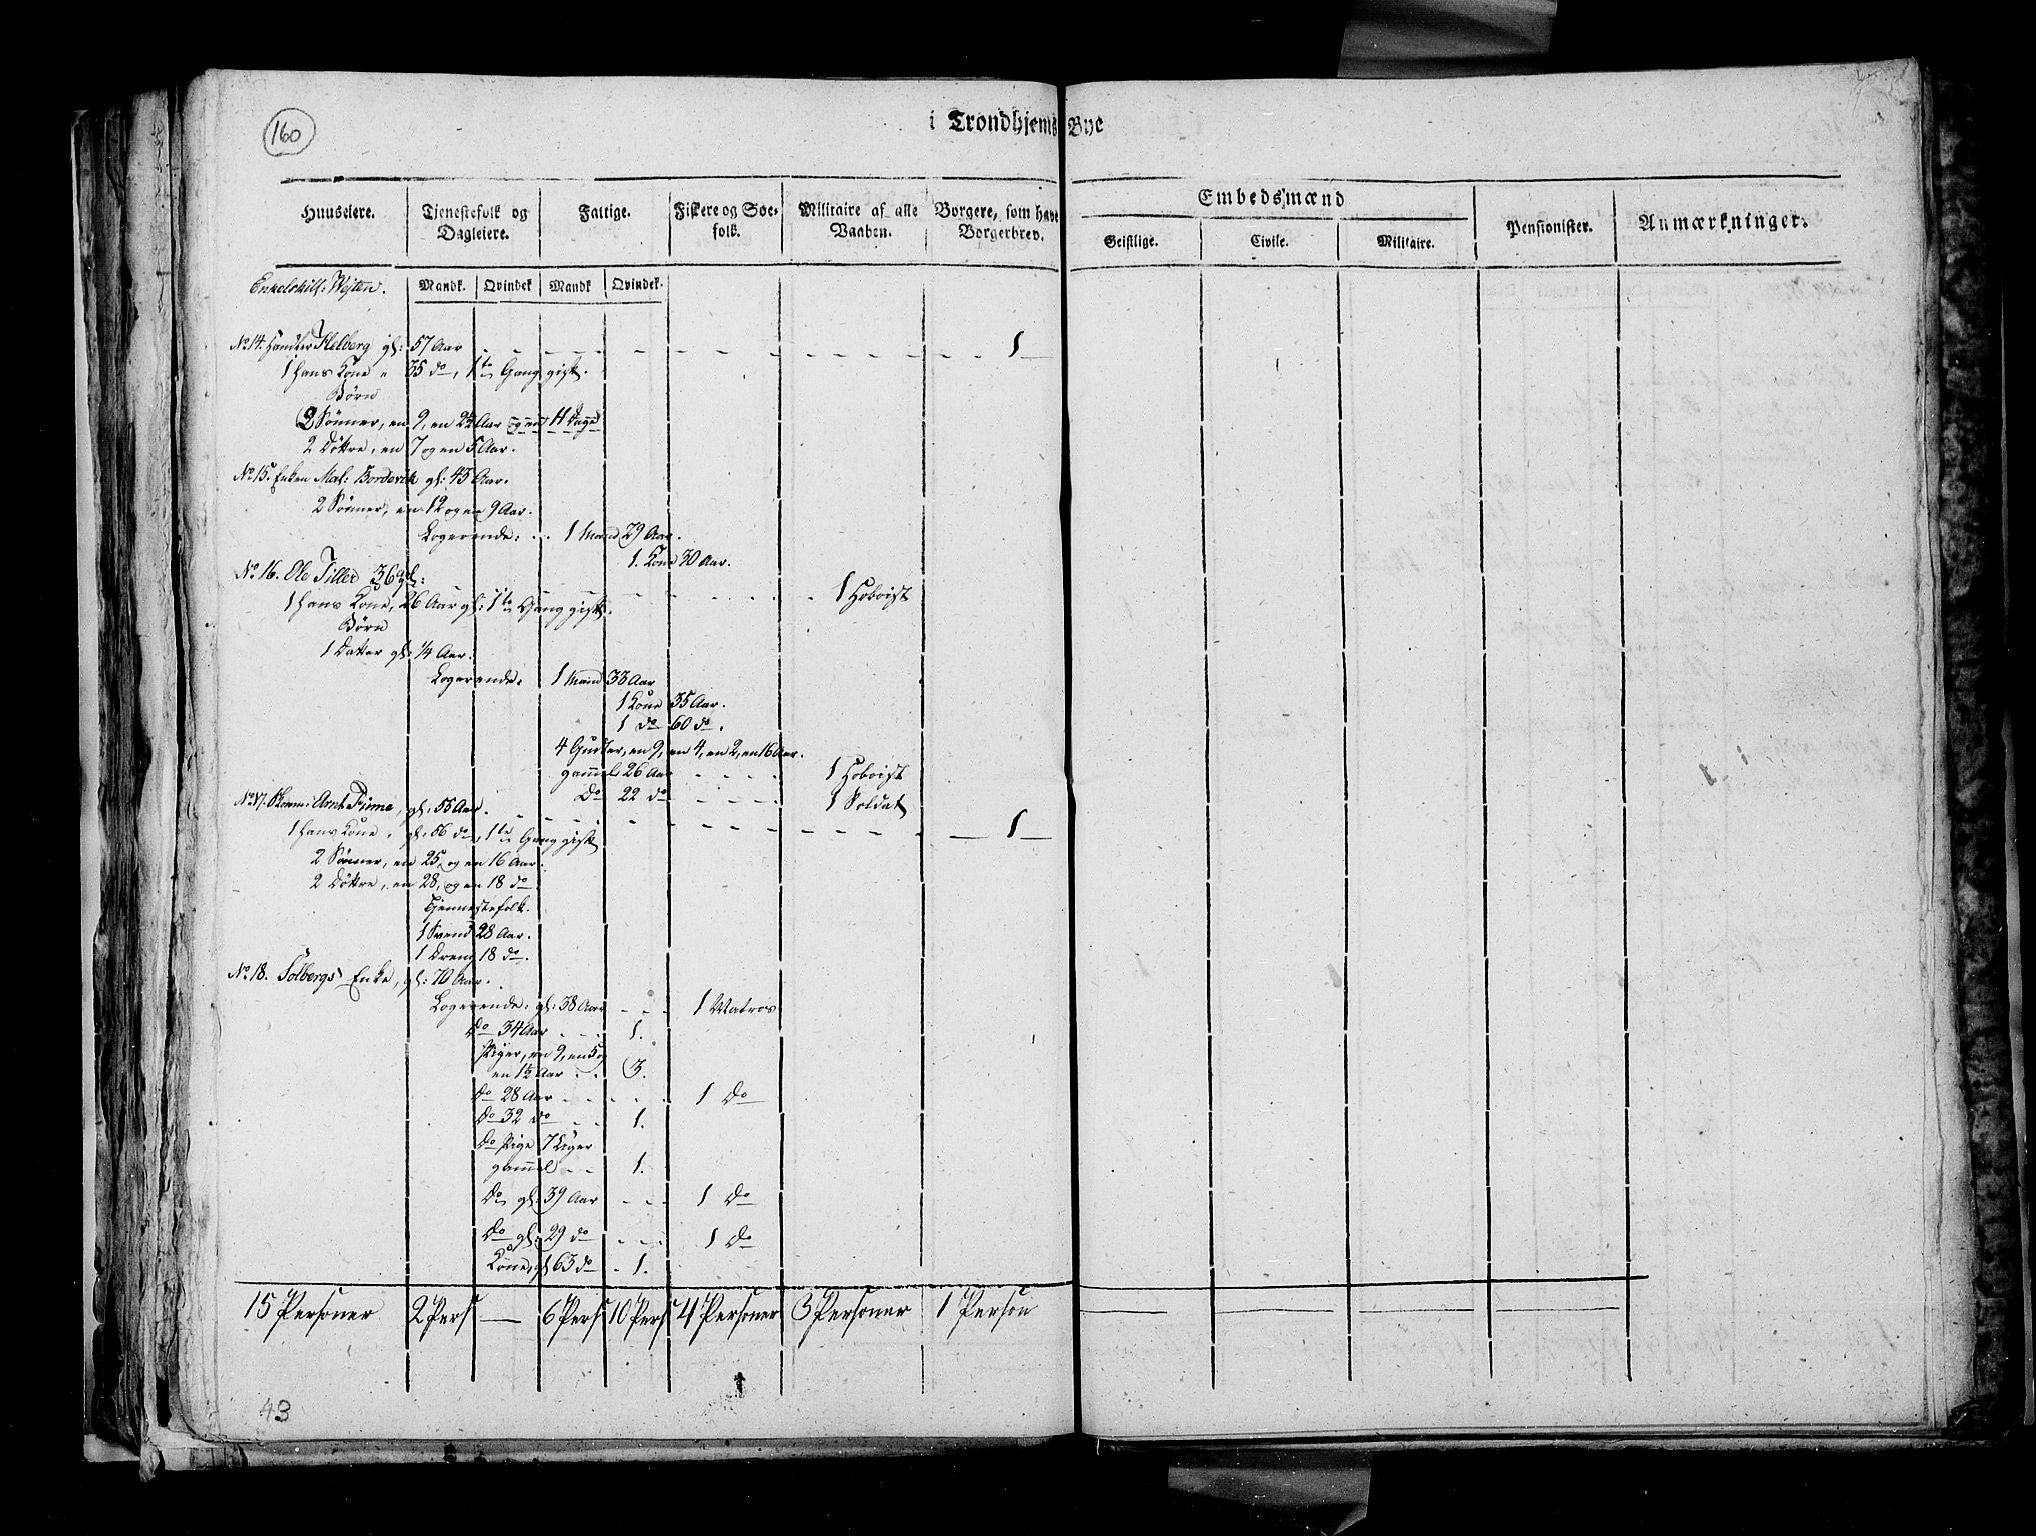 160
i Trondhjems Bye
Huuseiere. Tjenestefolk og Dagleiere. Fattige. Fiskere og Søefolk. Militaire af alle Vaaben. Borgere, som have Borgerbrev. Embedsmænd Pensionister. Anmærkninger.
Geistlige. Civile. Militaire.
Mandk. Qvindek Mandk Qvindek.
Enkelskilf: Vejten.
No 14. Handler Helberg gl: 57 Aar 1
1 hans Kone " 35 do, 1te Gang gift.
Børn
3 Sønner, en 9, en 2½ Aar og en 14 Dage
2 Døttre, en 7 og en 5 Aar.
No 15. Enken Mat: Borderik gl: 45 Aar.
2 Sønner, en 12 og en 9 Aar.
Logerende: 1 Mand 29 Aar.
1. Kone 30 Aar.
No 16. Ole Tiller 36 gl:
1 hans Kone, 26 Aar gl: 1te Gang gift. 1 Hoboist
Børn
1 Datter gl: ¼ Aar.
Logerende: 1 Mand 33 Aar
1 Kone 35 Aar.
1 do 60 do.
4 Gutter, en 9, en 4, en 2, en 16 Aar.
gammel 26 Aar 1 Hoboist
Do 22 do 1 Soldat
No 17. Skom: Arnt Finne, gl: 55 Aar. 1
1 hans Kone, gl: 56 do, 1te Gang gift
2 Sønner, en 25, og en 16 Aar.
2 Døttre, en 28, og en 18 do
Tjennestefolk.
1 Svend 28 Aar.
1 Dreng 18 do.
No 18. Solbergs Enke, gl: 70 Aar.
Logerende: gl: 38 Aar 1 Matros
Do 34 Aar 1.
Piger, en 9, en 5 og
en 1½ Aar 3.
Do 28 Aar 1 Do
Do 32 do 1.
Do Pige 7 Uger
gammel 1.
Do gl: 39 Aar 1 Do
Do gl: 29 do 1 Do
Kone, gl 63 do 1.
15 Personer 2 Pers — 6 Pers 10 Pers 4 Personer 3 Personer 1 Person
43